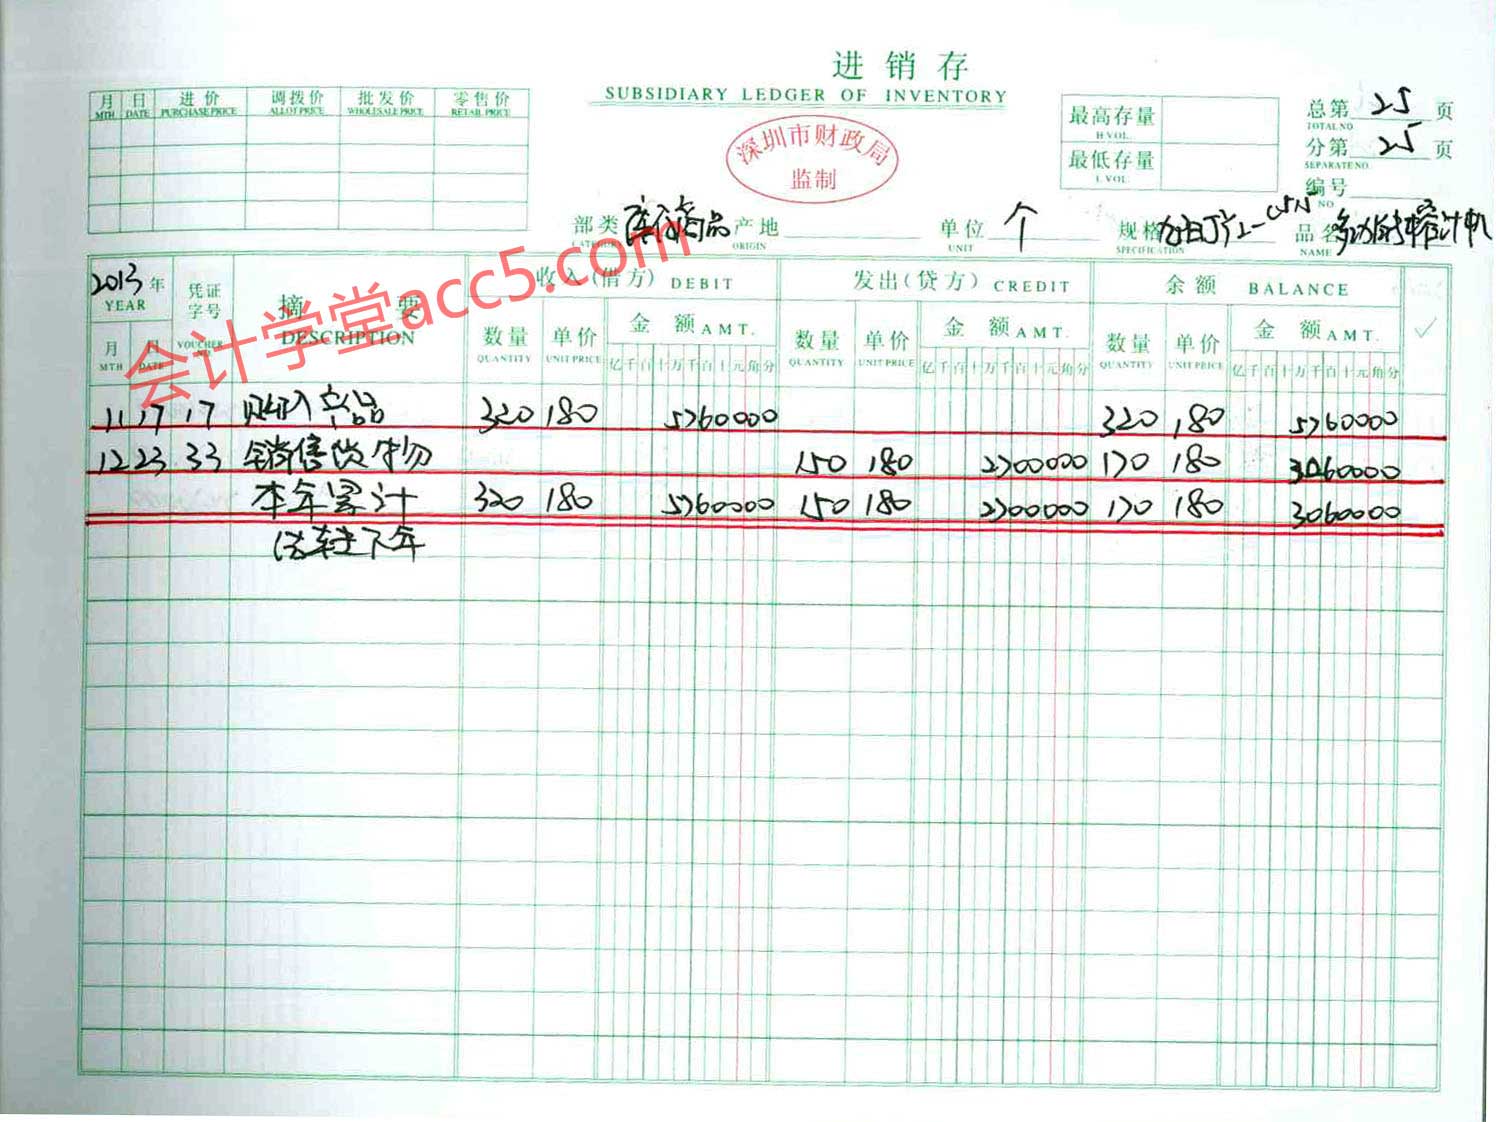 进销存
SUBSIDIARY LEDGER OF INVENTORY
深圳市财政局
监制
月 日 进价 调拨价 批发价 零售价
MTH DATE PURCHASE PRICE ALLOT PRICE WHOLESALE PRICE RETAIL PRICE
最高存量
H VOL.
最低存量
L VOL.
总第 25 页
TOTAL NO
分第 25 页
SEPARATE NO.
编号
NO
部类 库存商品 产地 单位 个 规格 品名
CATEGORY ORIGIN UNIT SPECIFICATION NAME
2013 年 凭证字号 摘要 收入(借方) DEBIT 发出(贷方) CREDIT 余额 BALANCE
YEAR VOUCHER NO DESCRIPTION
月 日 数量 单价 金额 AMT. 数量 单价 金额 AMT. 数量 单价 金额 AMT.
MTH DATE QUANTITY UNIT PRICE QUANTITY UNIT PRICE QUANTITY UNIT PRICE
亿千百十万千百十元角分 亿千百十万千百十元角分 亿千百十万千百十元角分
会计学堂acc5.com
11 17 17 购入产品 320 180 5760000 320 180 5760000
12 23 33 销售货物 150 180 2700000 170 180 3060000
本年累计 320 180 5760000 150 180 2700000 170 180 3060000
结转下年